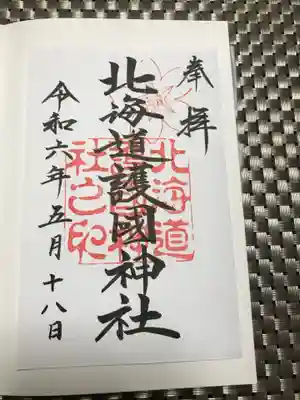 奉拝
北海道護國神社
北海道
護國神
社之印
令和六年五月十八日